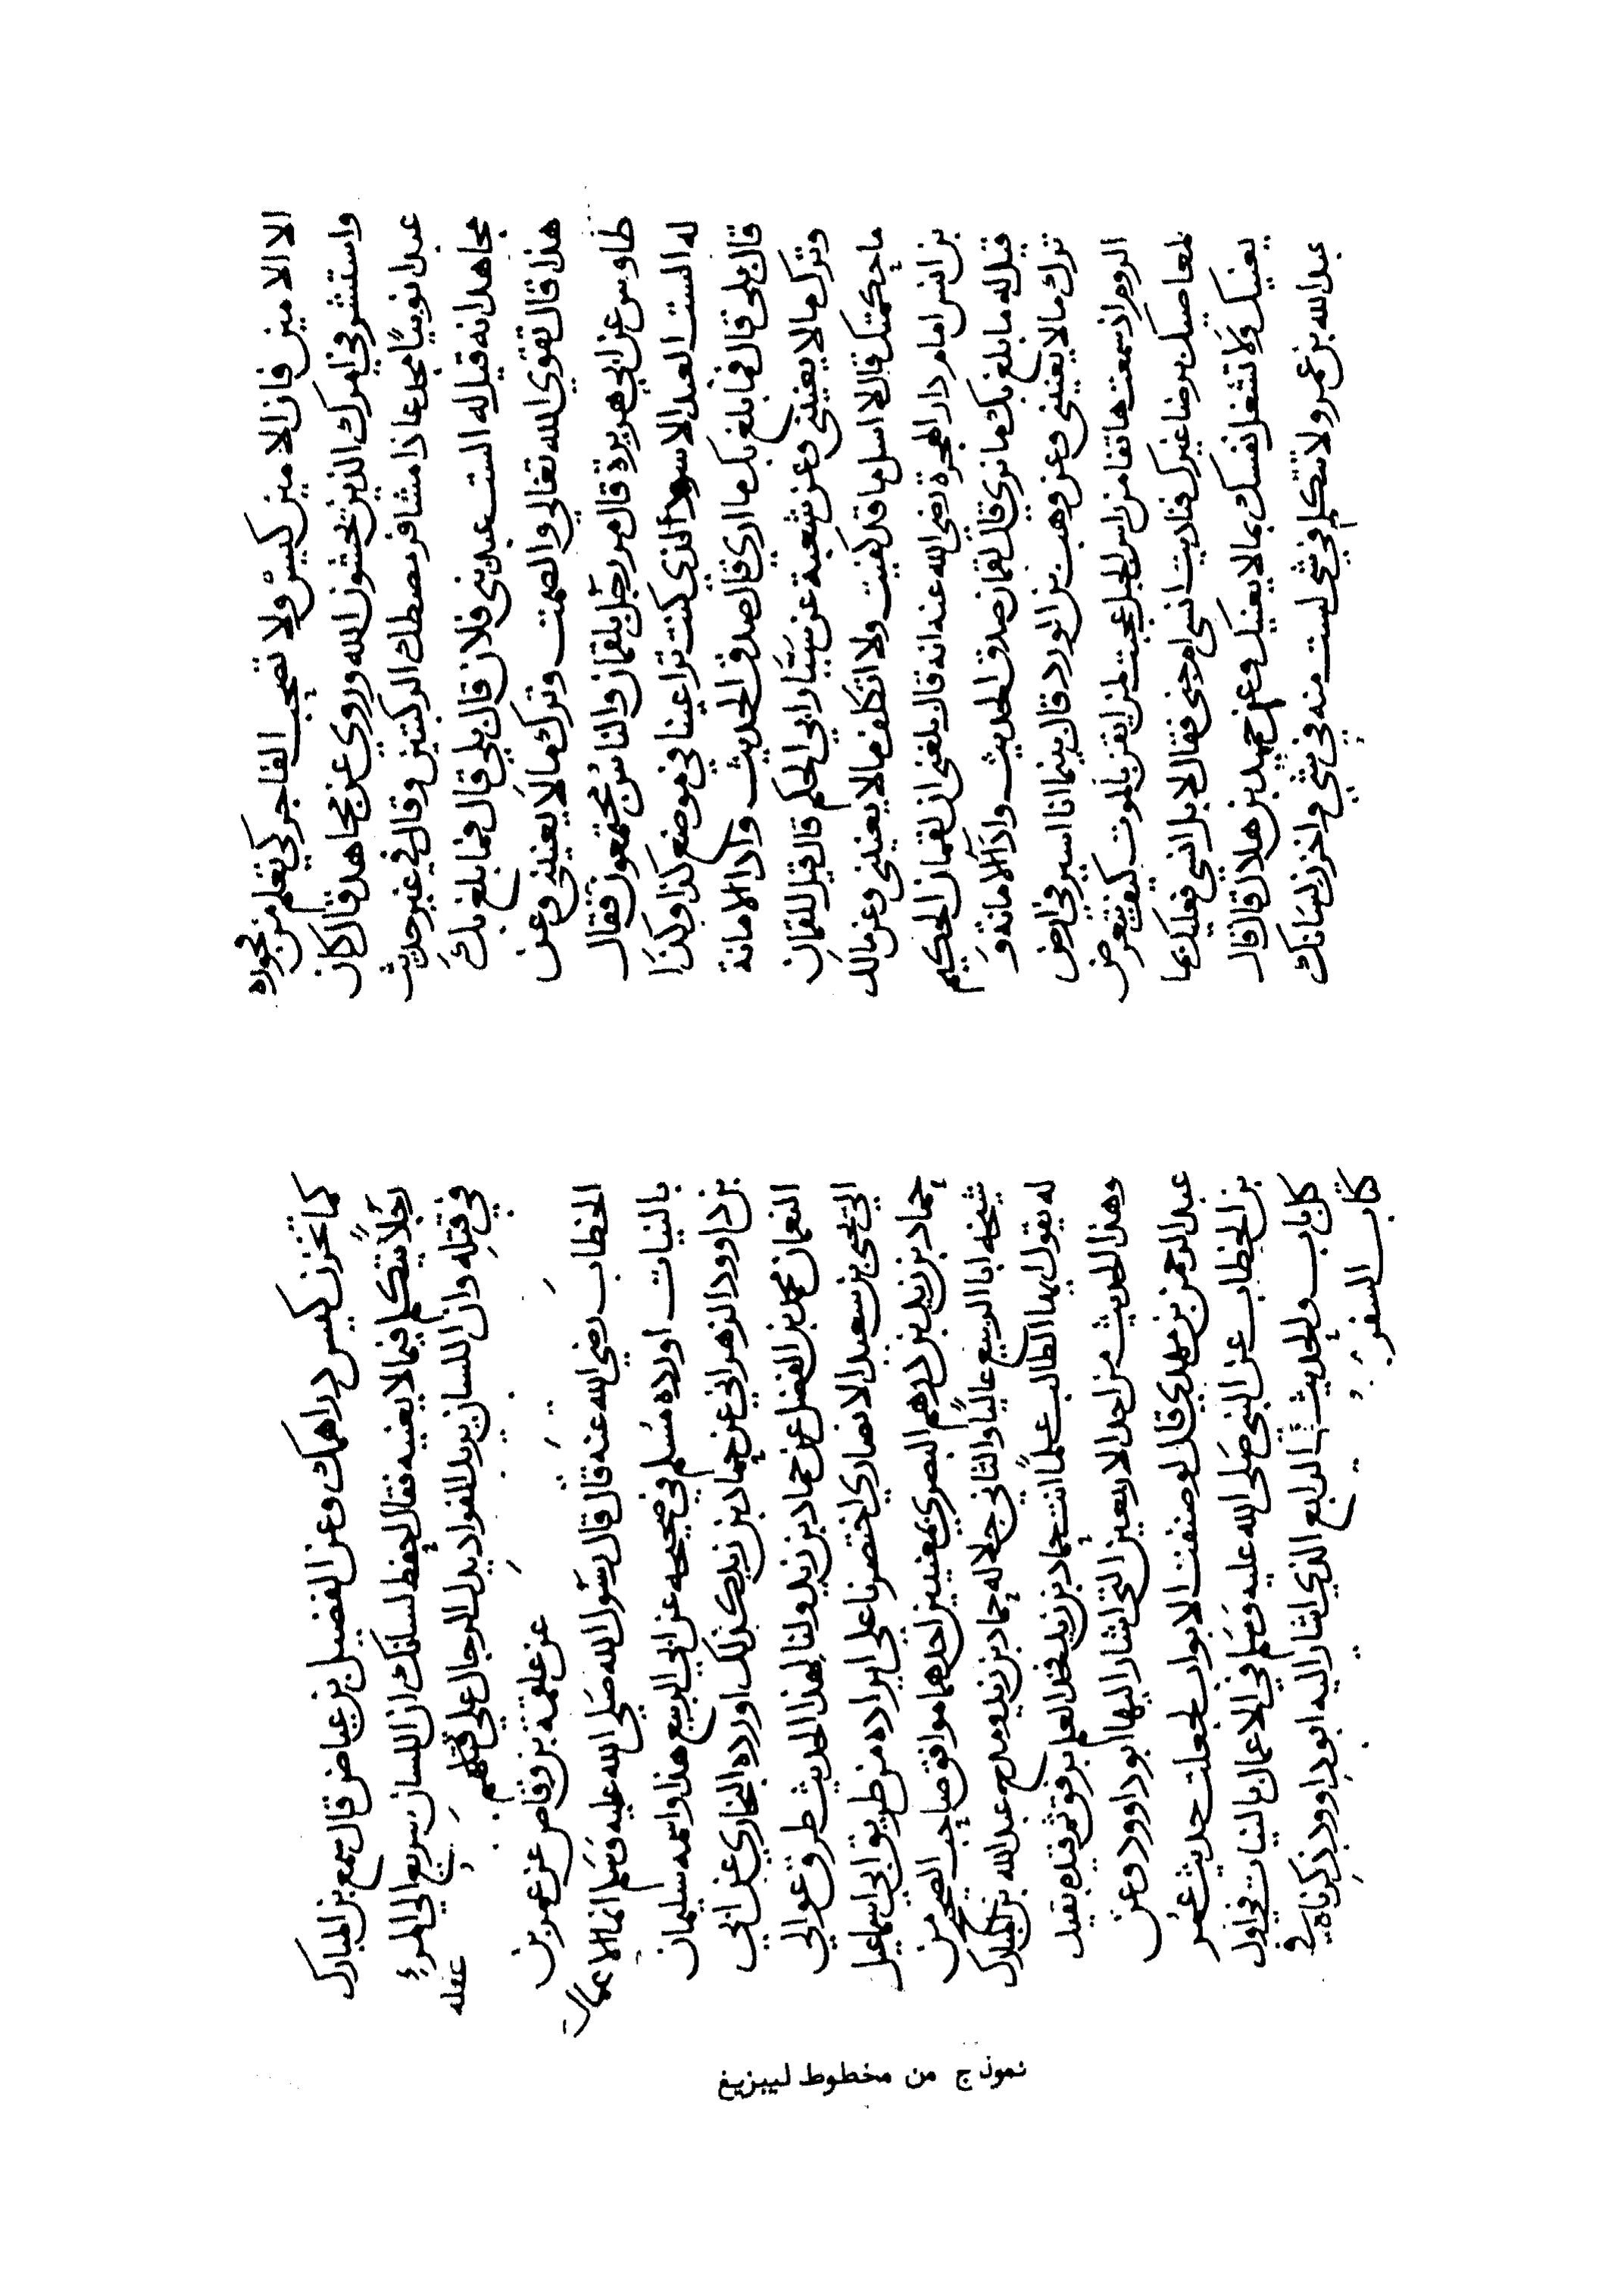 الا الامين فان الامين كبير ولا تصحب الفاجر كي تعلم من فجوره
واستشر في امرك الذين يخشون الله وروي عن مجاهد قال كان
عبدا نوبيًا مجدعا ذا مشافر مصطك الركبتين وقال في غير حديث
مجاهد انه قيل له الست عبد بني فلان قال بلي قال فما بلغ بك
هذا قال تقوي الله تعالي والصمت وترك مالا يعنيني وعن
طاوس عن ابي هريرة قال مر رجل بلقمان والناس مجتمعون فقال
له الست العبد الاسود الذي كنت تراعينا في موضع كذا وكذا
قال بلي قال فما بلغ بك ما اري قال صدق الحديث واداء الامانة
وترك مالا يعنيني وعن شعبة عن سيَّار ابي الحكم قال قيل للقمان
ما حكمتك قال لا اسل ما قد كفيت ولا اتكلف مالا يعنيني وعن مالك
بن انس امام دار الهجرة رضي الله عنه انه قال بلغني ان لقمان الحكيم
قيل له ما بلغ بك ما نري قال لقمان صدق الحديث واداَ الامانة وَ
ترك مالا يعنيني وعن وهب بن الورد قال بينما انا اسير في ارض
الروم اذ سمعت هاتفا من راس الجبل عجبت لمن ايقن بالموت كيف يتعرض
لمعاصيك برضا غيرك فناديت انسي ام جني فقال لا بل انسي فعليك بما
يعنيك ولا تشغل نفسك بما لا يعنيك وعن حميد بن هلال قال قال
عبد الله بن عمرو لا تتكلم في شي لست منه في شي واخزن لسانك
كما تخزن كيس دراهمك وعن الفضيل بن عياض قال سمع بن المبارك
رجلاً يتكلم فيما لا يعنيه فقال احفظ لسانك ان اللسان سريع الي المرءِ
في قتلِه وان اللسان بريد الفواد يدل الرجال علي عقله
عن علقمة بن وقاص عن عمر بن
الخطاب رضي الله عنه قال قال رسول الله صَلي الله عليه وَسَلم انما الاعمال
بالنيات اورده مُسلم في صحيحه عن ابي الربيع هذا واسمه سليمان
بن داوود الزهراني عن حماد بن زيد كذلك اورده البخاري عن ابي
النعمان محمد بن الفضل عن حماد بن زيد ولنا لهذا الحديث طرق عوالي
الي يحيى بن سعيد الانصاري اختصرنا علي ايراده من طريق ابي اسماعيل
حماد بن زيد بن درهم البصري بمعنيين احدهما موافق صاحب الصحيح من
شيخه ابا الربيع عاليًا والثاني جلالة حماد بن زيد ومدح عبد الله بن المبارك
له يقول ايها الطالب علمًا ائت حماد بن زيد فخذ العلم برفق ثم قيده بقيد
وهذا الحديث من احد الاربعين التي اشار اليها ابو داوود وعن
عبد الرحمن بن مهدي قال لو صنفت الابواب لجعلت حديث عُمر
بن الخطاب عن النبي صَلي الله عليه وَسَلم في الاعمال بالنيات في اول
كل باب والحديث الرابع الذي اشار اليه ابو داوود ذكرناه في
كتاب السفر
نموذج من مخطوط ليبزيغ